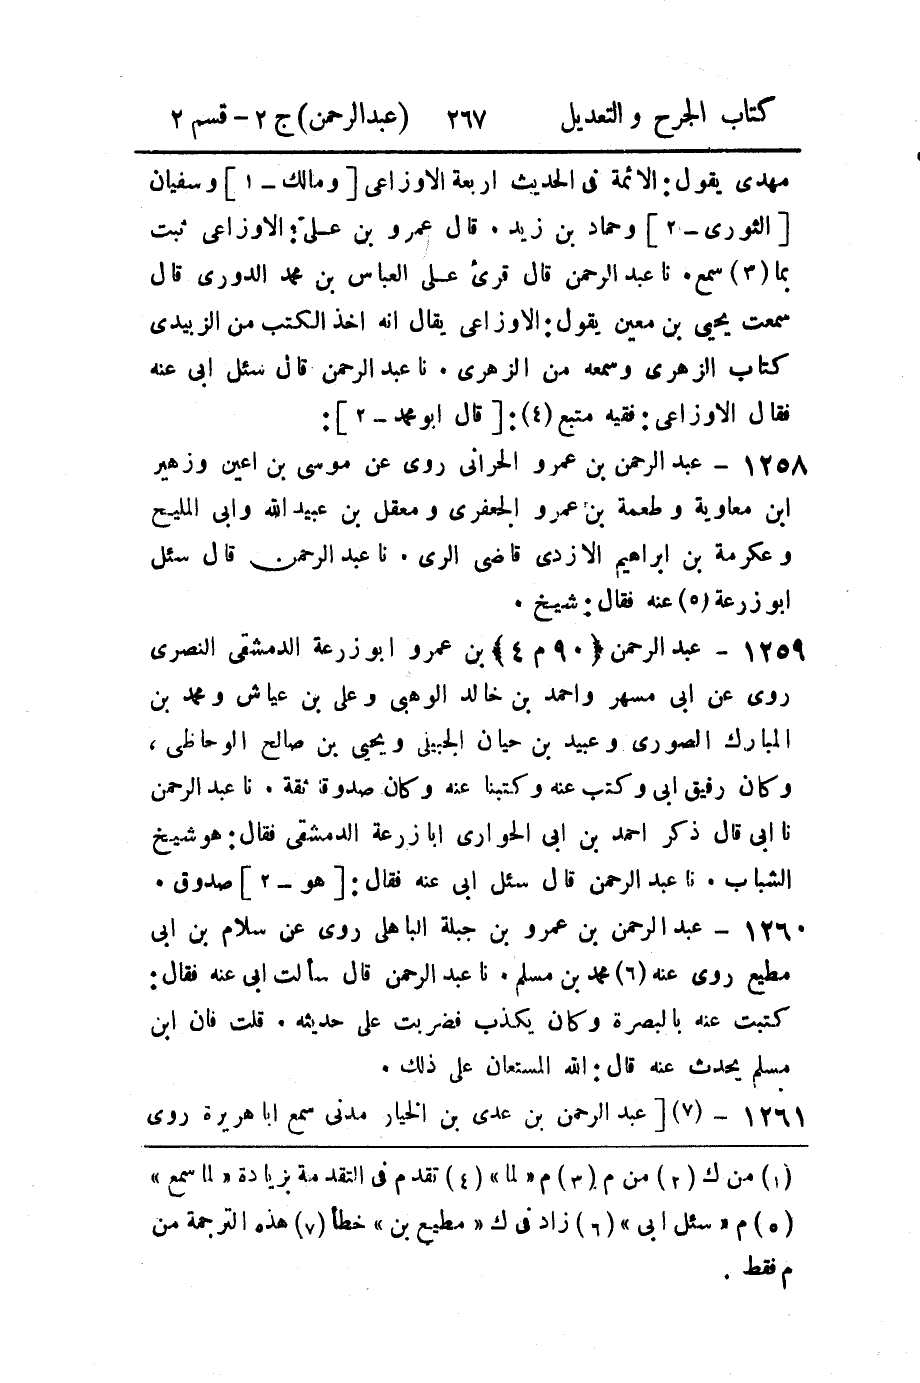 كتاب الجرح و التعديل ٢٦٧ (عبدالرحمن) ج ٢ - قسم ٢
مهدى يقول: الائمة فى الحديث اربعة الاوزاعى [ ومالك - ١ ] وسفيان
[ الثورى - ٢ ] وحماد بن زيد ٠ قال عمرو بن على: الاوزاعى ثبت
بما (٣) سمع ٠ نا عبد الرحمن قال قرئ على العباس بن محمد الدورى قال
سمعت يحيى بن معين يقول: الاوزاعى يقال انه اخذ الكتب من الزبيدى
كتاب الزهرى وسمعه من الزهرى ٠ نا عبد الرحمن قال سئل ابى عنه
فقال الاوزاعى: فقيه متبع (٤): [ قال ابو محمد - ٢ ]:
١٢٥٨ - عبد الرحمن بن عمرو الحرانى روى عن موسى بن اعين وزهير
ابن معاوية وطعمة بن عمرو الجعفرى ومعقل بن عبيد الله وابى المليح
وعكرمة بن ابراهيم الازدى قاضى الرى ٠ نا عبد الرحمن قال سئل
ابو زرعة (٥) عنه فقال: شيخ ٠
١٢٥٩ - عبد الرحمن {٩٠ م ٤} بن عمرو ابو زرعة الدمشقى النصرى
روى عن ابى مسهر واحمد بن خالد الوهبى وعلى بن عياش ومحمد بن
المبارك الصورى وعبيد بن حيان الجبيلى ويحيى بن صالح الوحاظى ،
وكان رفيق ابى وكتب عنه وكتبنا عنه وكان صدوقا ثقة ٠ نا عبد الرحمن
نا ابى قال ذكر احمد بن ابى الحوارى ابا زرعة الدمشقى فقال: هو شيخ
الشباب ٠ نا عبد الرحمن قال سئل ابى عنه فقال: [ هو - ٢ ] صدوق ٠
١٢٦٠ - عبد الرحمن بن عمرو بن جبلة الباهلى روى عن سلام بن ابى
مطيع روى عنه (٦) محمد بن مسلم ٠ نا عبد الرحمن قال سألت ابى عنه فقال:
كتبت عنه بالبصرة وكان يكذب فضربت على حديثه ٠ قلت فان ابن
مسلم يحدث عنه قال: الله المستعان على ذلك ٠
١٢٦١ - (٧) [ عبد الرحمن بن عدى بن الخيار مدنى سمع ابا هريرة روى
(١) من ك (٢) من م (٣) م « لما » (٤) تقدم فى التقدمة بزيادة « لما سمع »
(٥) م « سئل ابى » (٦) زاد فى ك « مطيع بن » خطأ (٧) هذه الترجمة من
م فقط .